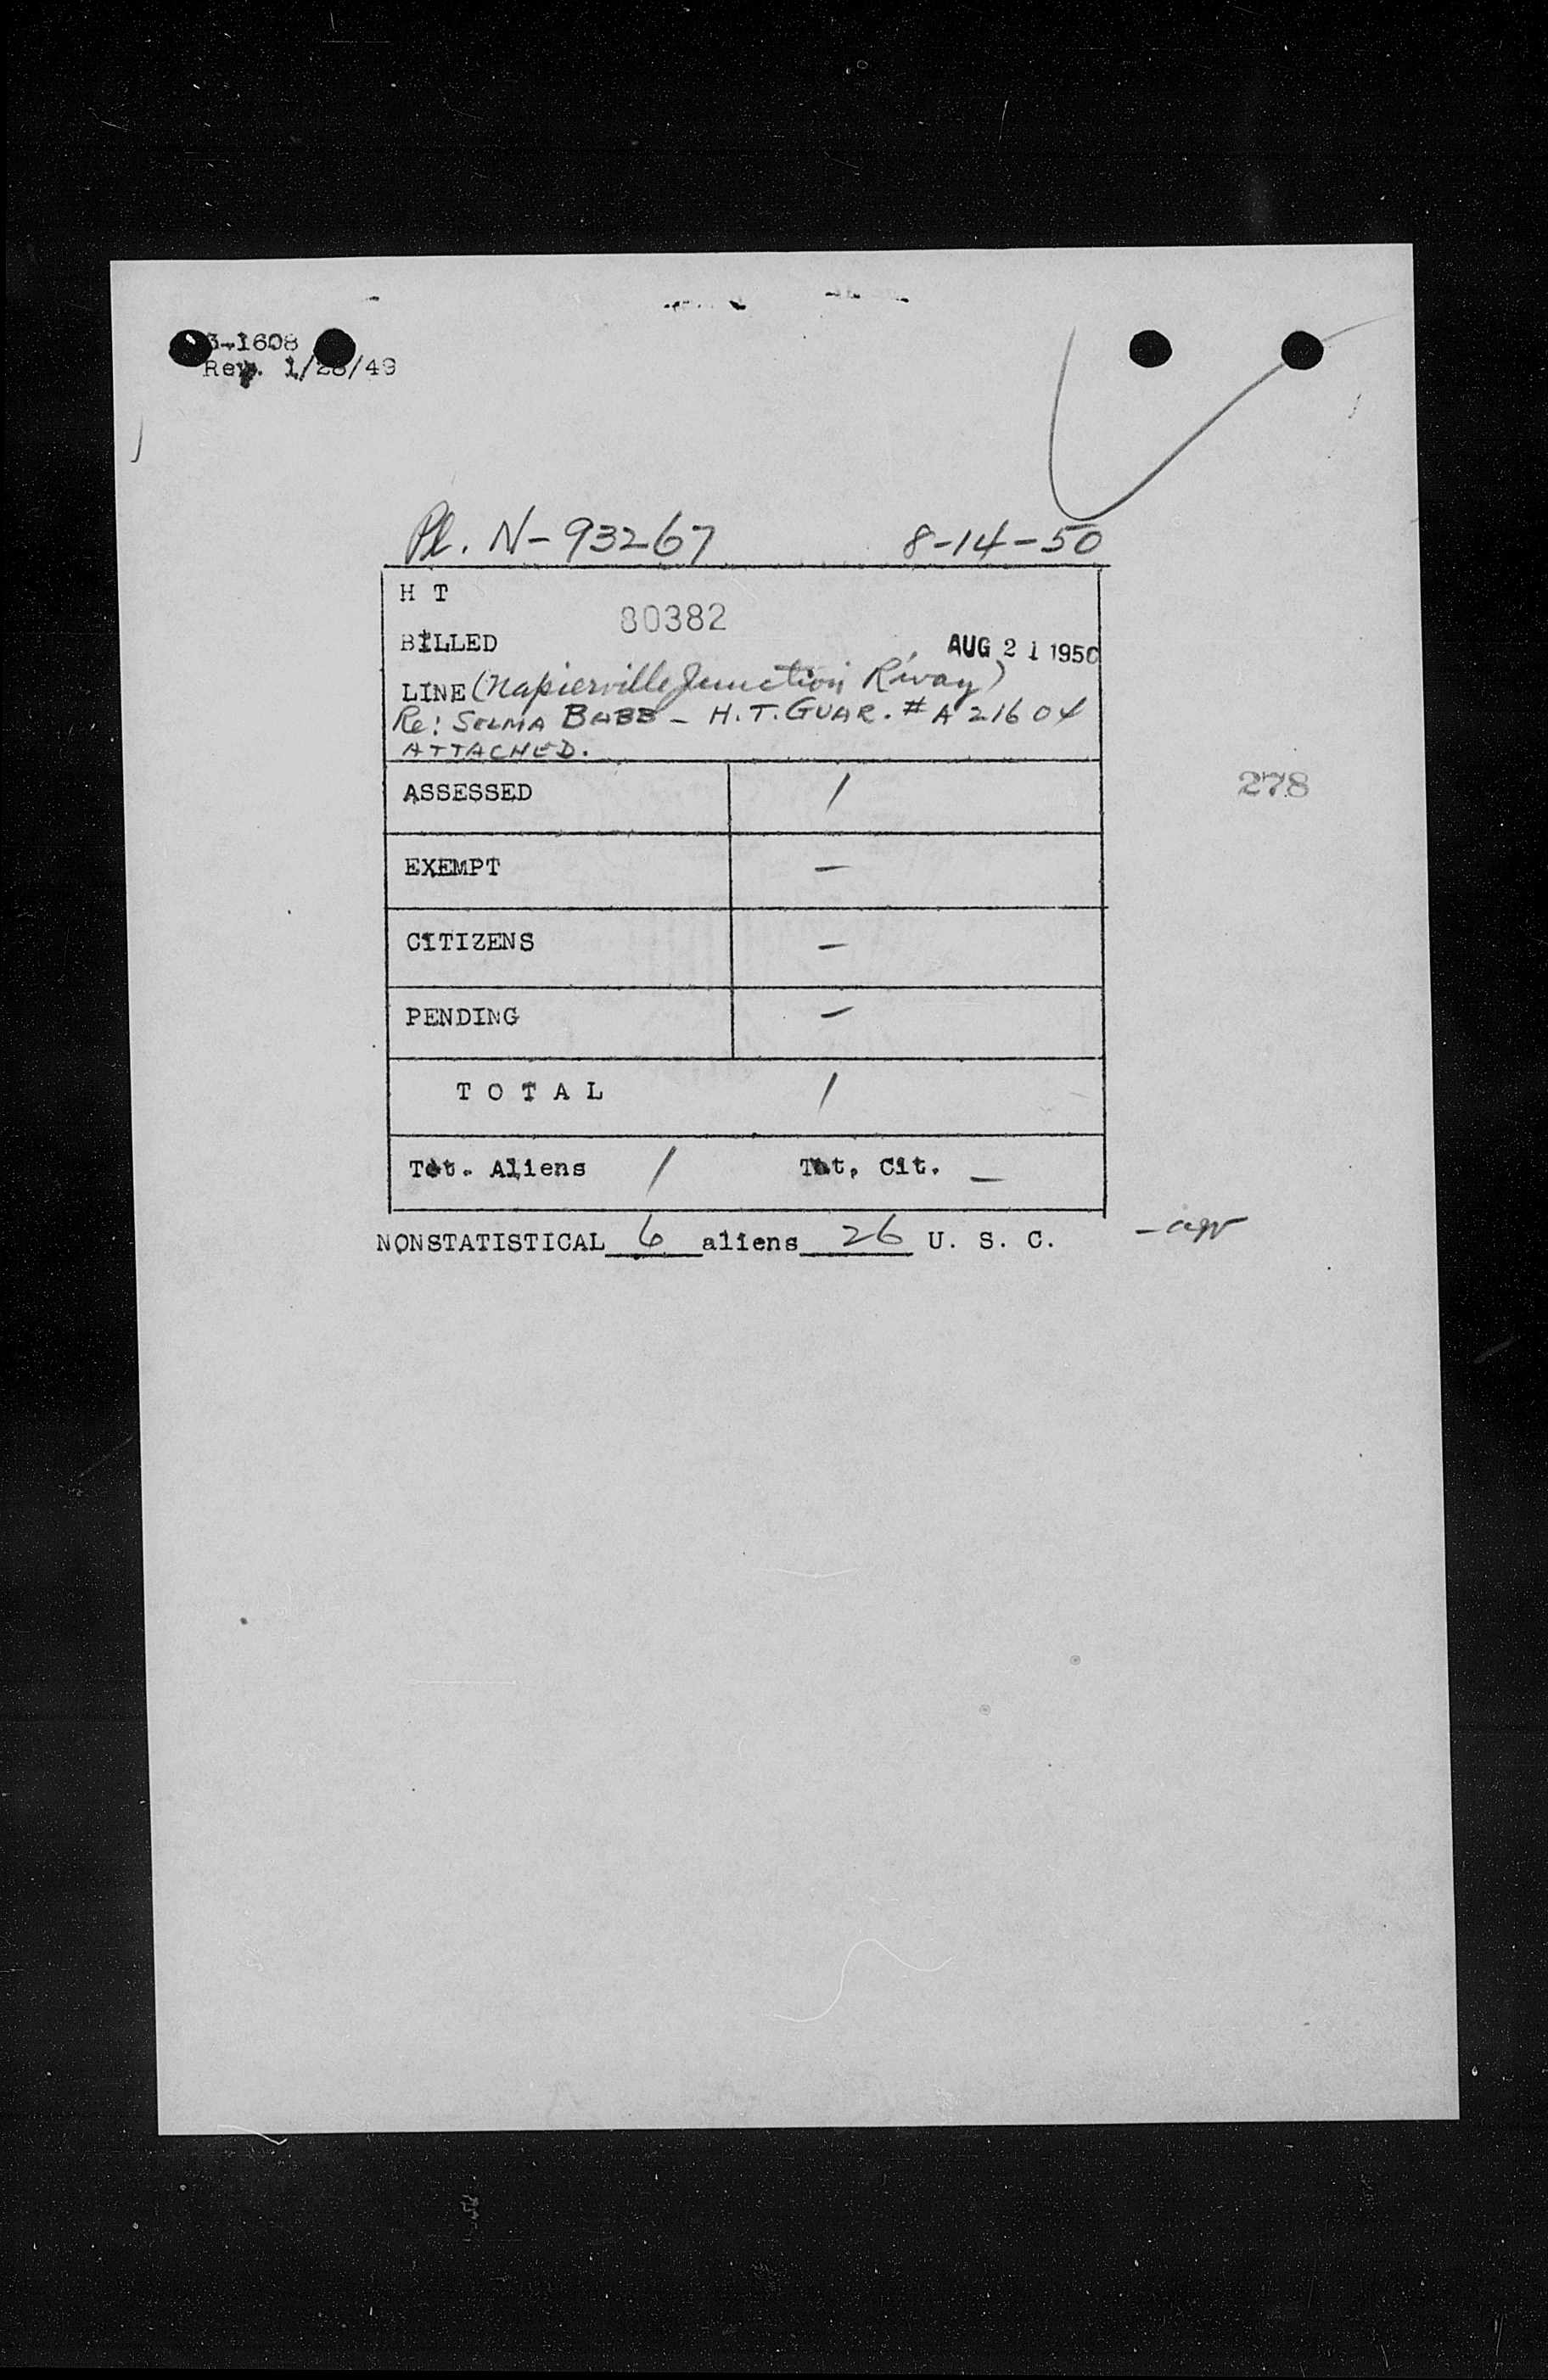 3-1608
Rev. 1/28/49
Pl. N-93267 8-14-50
H T
80382
BILLED AUG 21 1950
LINE (Napierville Junction R'way)
Re: SELMA BABB - H.T. GUAR. # A 21604
ATTACHED.
ASSESSED 1
278
EXEMPT -
CITIZENS -
PENDING -
T O T A L 1
Tot. Aliens 1 Tot. Cit. -
NONSTATISTICAL 6 aliens 26 U. S. C.